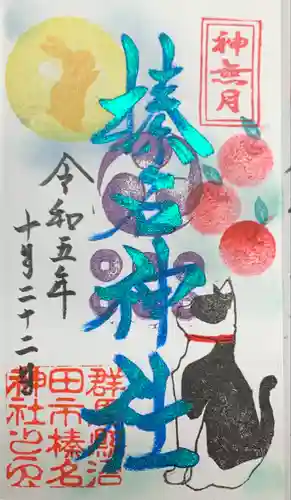 神無月
榛名神社
令和五年
十月二十二日
群馬縣沼
田市榛名
神社之印